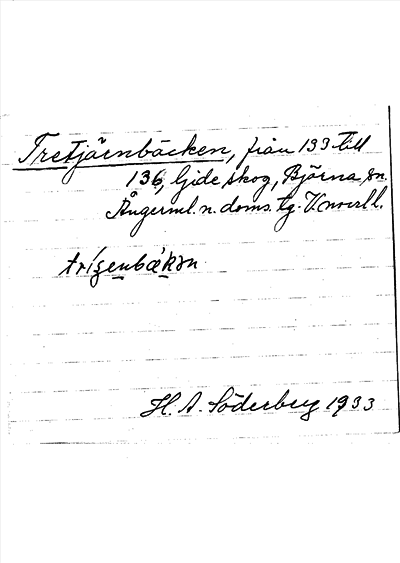 Tretjärnbäcken, från 133 till
136, Gideå skog, Björna sn.
Ångerml. n. doms. tg. V.norrl l.
trízenbǽkǝn
H. A. Söderberg 1933